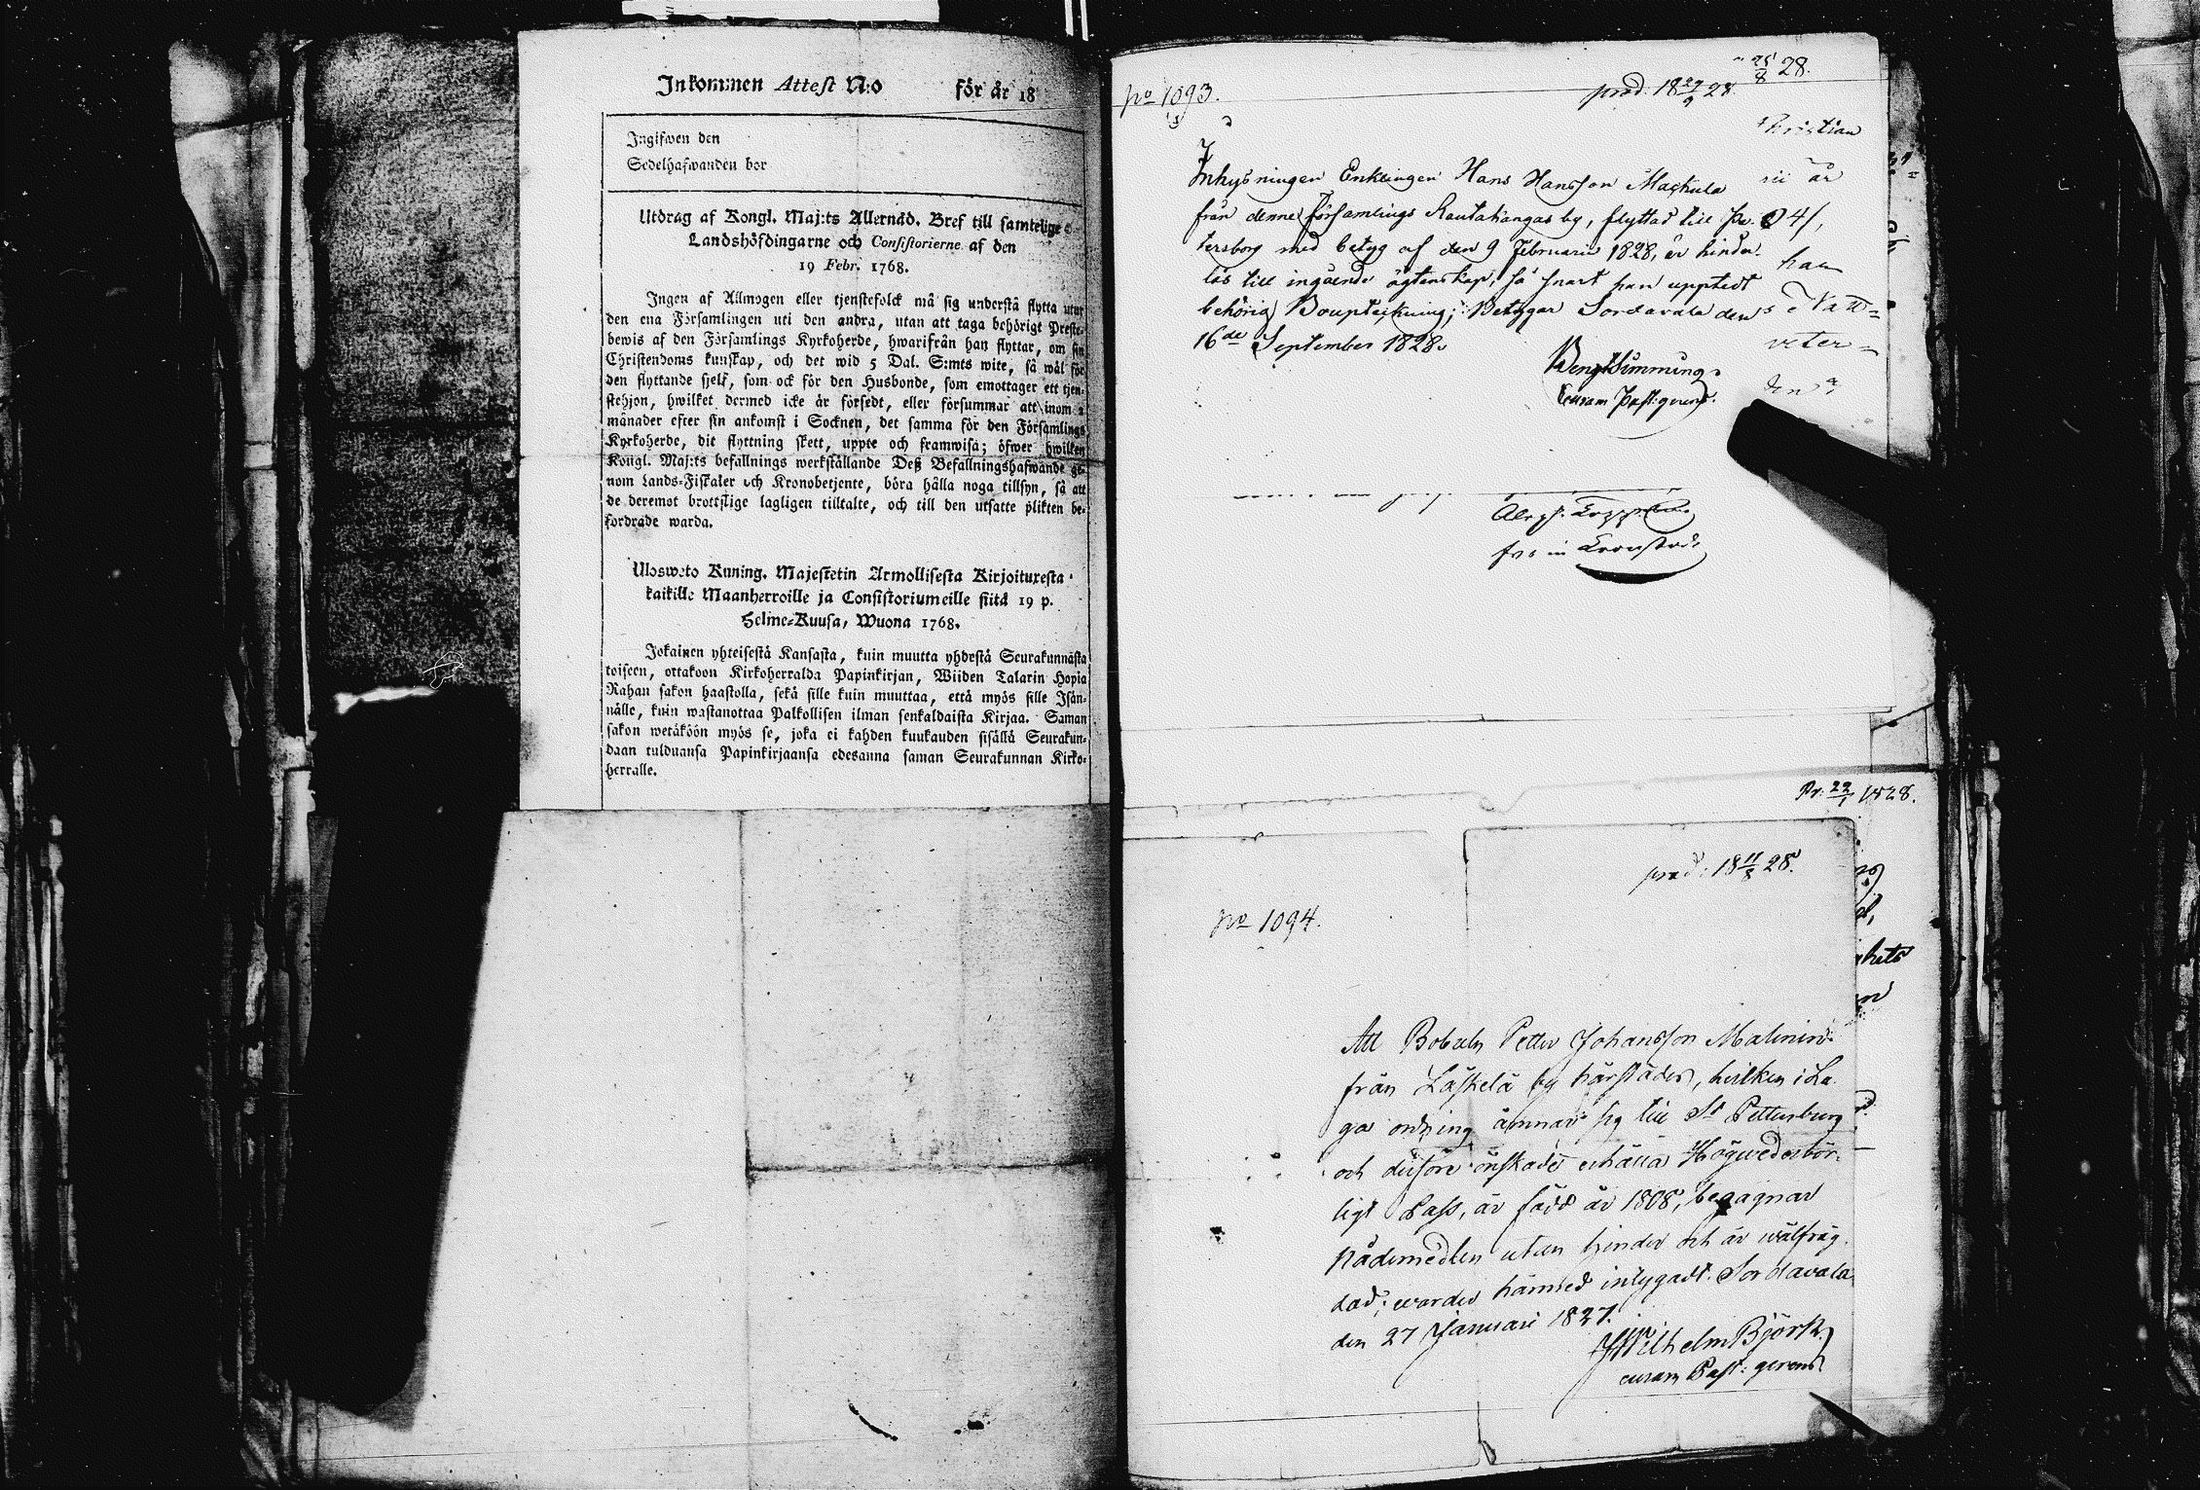 Inkommen Attest N:o för år 18
Ingifwen den
Sedelhafwanden bor
Utdrag af Kongl. Maj:ts Allernåd. Bref till samtelige
Landshöfdingarne och Consistorierne af den
19 Febr. 1768.
Ingen af Allmogen eller tjenstefolck må sig understå flytta utur
den ena Församlingen uti den andra, utan att taga behörigt Preste-
bewis af den Församlings Kyrkoherde, hwarifrån han flyttar, om sin
Christendoms kunskap, och det wid 5 Dal. S:mts wite, så wäl för
den flyttande sjelf, som ock för den Husbonde, som emottager ett tjen-
stehjon, hwilket dermed icke är försedt, eller försummar att inom 2
månader efter sin ankomst i Socknen, det samma för den Församlings
Kyrkoherde, dit flyttning skett, uppte och framwisa; öfwer hwilken
Kongl. Maj:ts befallnings werkställande Deß Befallningshafwande ge-
nom Lands-Fiskaler och Kronobetjente, böra hålla noga tillsyn, så att
de deremot brottslige lagligen tilltalte, och till den utsatte plikten be-
fordrade warda.
Ulosweto Kuning. Majestetin Armollisesta Kirjoituxesta
kaikille Maanherroille ja Consistoriumeille siitä 19 p.
Helme-Kuusa, Wuona 1768.
Jokainen yhteisestä Kansasta, kuin muutta yhdestä Seurakunnasta
toiseen, ottakoon Kirkoherralda Papinkirjan, Wiiden Talarin Hopia
Rahan sakon haastolla, sekä sille kuin muuttaa, että myös sille Isän-
nälle, kuin wastanottaa Palkollisen ilman senkaldaista Kirjaa. Saman
sakon wetäköön myös se, joka ei kahden kuukauden sisällä Seurakun-
daan tulduansa Papinkirjaansa edesanna saman Seurakunnan Kirko-
herralle.
25/8 28.
No 1093. prod. 18 27/9 28
Christian
Inhysningen Enklingen Hans Hansson Mackula
från denne Församlings Rautakangas by, flyttad till Pe-
tersborg med betyg af den 9 Februarii 1828, är hinder-
lös till ingående ägtenskap, så snart han upptedt
behörig Bouptekning; Betygar Sordavala den
16de September 1828.
Bengt Simming
Curam Past: gerens.
han
veter=
fas in Cronstadt
Pr. 22/1 1828.
prod: 18 11/8 28.
No 1094.
Att Bobuln Petter Johansson Malinin
från Läskelä by härstädes, hvilken i La-
ga ordning ämnar sig till St Pettersburg
och dertöre önskade erhålla Högvederbör-
ligt Pass, är född år 1808, begagnar
Nådemedlen utan hinder och är wälfräg-
dad; warder härmed intygadt. Sordavala
den 27 Januari 1827.
Wilhelm Björk
curam Past: gerens